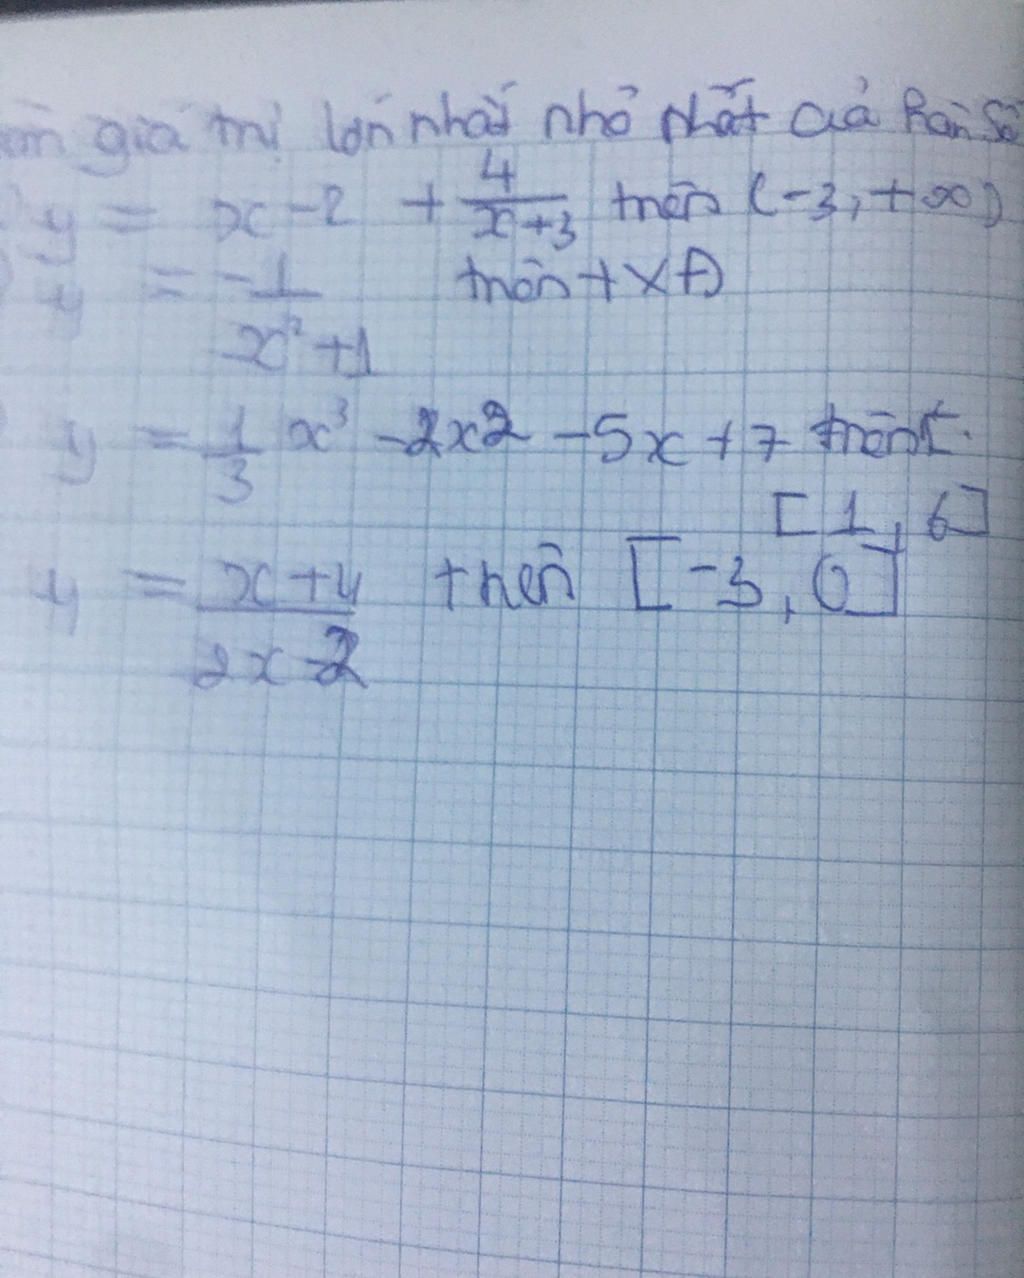 giá trị lớn nhất nhỏ nhất của hàm số
y = x - 2 + 4/(x+3) trên (-3, +∞)
y = -1/(x²+1) trên TXĐ
y = 1/3 x³ - 2x2 - 5x + 7 trên
[1, 6]
y = (x+4)/(2x-2) trên [-3, 0]